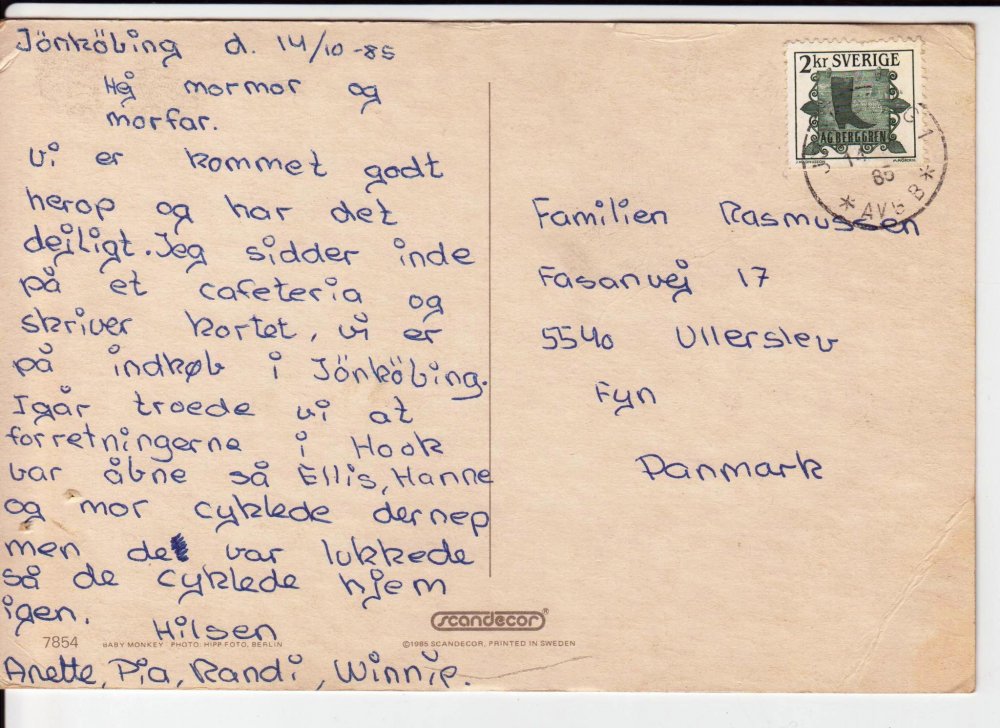 Jönköbing d. 14/10-85
Hej mormor og
morfar.
Vi er kommet godt
herop og har det
dejligt. Jeg sidder inde
på et cafeteria og
skriver kortet, vi er
på indkøb i Jönköbing.
Igår troede vi at
forretningerne i Hook
var åbne så Ellis, Hanne
og mor cyklede dernep
men de var lukkede
så de cyklede hjem
igen.
Hilsen
Anette, Pia, Randi, Winnie.
2kr SVERIGE
AG BERGGREN
14
85
* AVG B *
Familien Rasmussen
Fasanvej 17
5540 Ullerslev
Fyn
Danmark
scandecor®
7854 BABY MONKEY PHOTO: HIPP FOTO, BERLIN
©1985 SCANDECOR, PRINTED IN SWEDEN